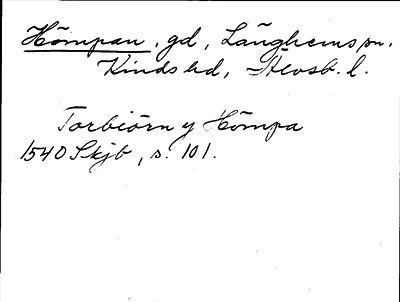 Hömpan, gd, Länghems sn.
Kinds hd, Älvsb. l.
Torbiörn y Hömpa
1540 Skjb, s. 101.